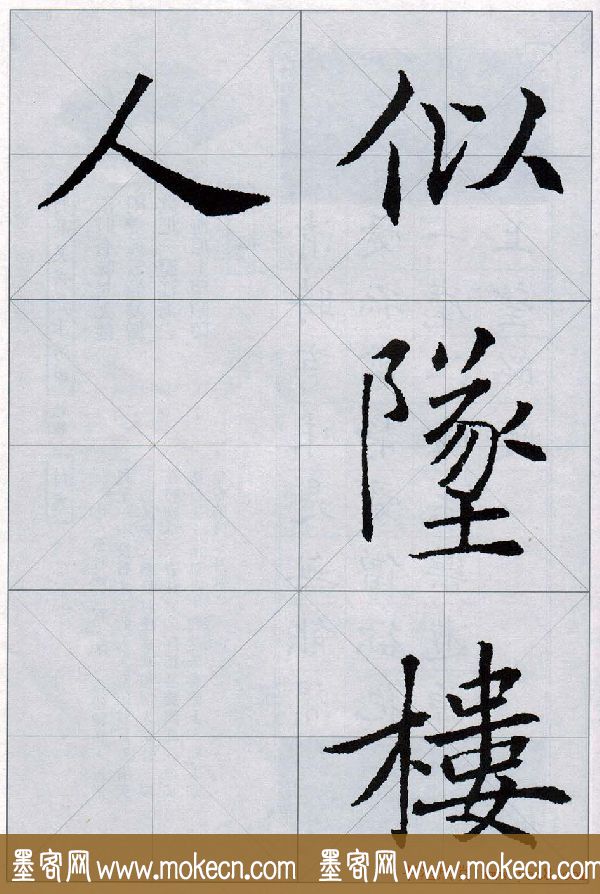 似墜樓
人
墨客网 www.mokecn.com 墨客网 www.mokecn.com